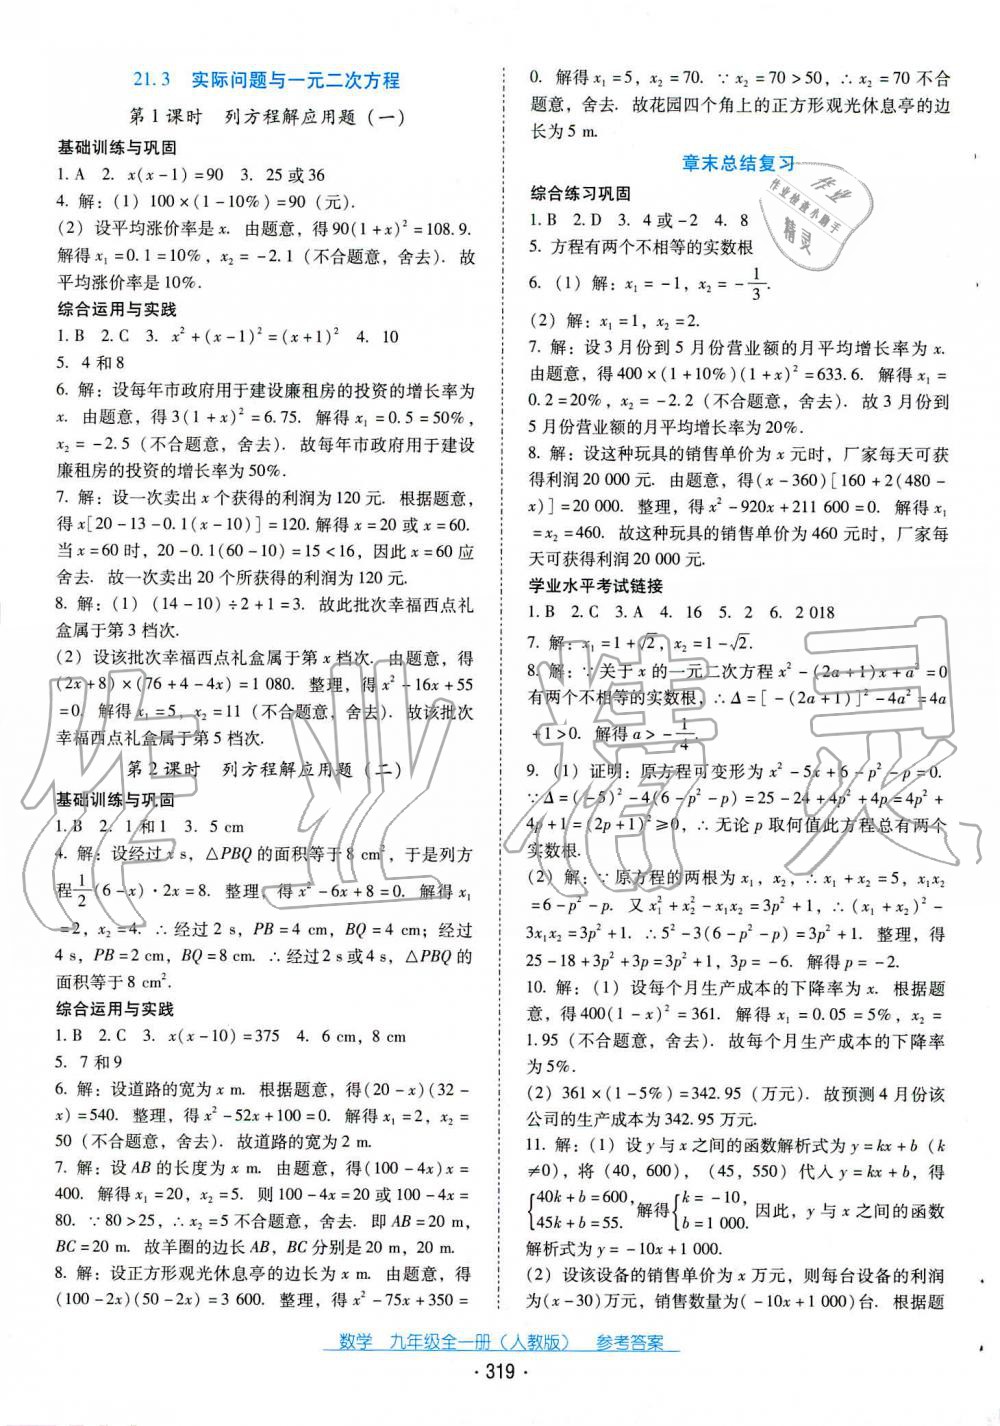 21.3 实际问题与一元二次方程
第1课时 列方程解应用题(一)
基础训练与巩固
1. A 2. x(x-1)=90 3. 25或36
4. 解:(1) 100×(1-10%)=90(元).
(2) 设平均涨价率是x. 由题意,得90(1+x)²=108.9.
解得x₁=0.1=10%, x₂=-2.1(不合题意,舍去). 故
平均涨价率是10%.
综合运用与实践
1. B 2. C 3. x²+(x-1)²=(x+1)² 4. 10
5. 4和8
6. 解:设每年市政府用于建设廉租房的投资的增长率为
x. 由题意,得3(1+x)²=6.75. 解得x₁=0.5=50%,
x₂=-2.5(不合题意,舍去). 故每年市政府用于建设
廉租房的投资的增长率为50%.
7. 解:设一次卖出x个获得的利润为120元. 根据题意,
得x[20-13-0.1(x-10)]=120. 解得x=20或x=60.
当x=60时, 20-0.1(60-10)=15<16, 因此x=60应
舍去. 故一次卖出20个所获得的利润为120元.
8. 解:(1) (14-10)÷2+1=3. 故此批次幸福西点礼
盒属于第3档次.
(2) 设该批次幸福西点礼盒属于第x档次. 由题意,得
(2x+8)×(76+4-4x)=1 080. 整理,得x²-16x+55
=0. 解得x₁=5, x₂=11(不合题意,舍去). 故该批次
幸福西点礼盒属于第5档次.
第2课时 列方程解应用题(二)
基础训练与巩固
1. B 2. 1和1 3. 5 cm
4. 解:设经过x s, △PBQ的面积等于8 cm², 于是列方
程1/2(6-x)·2x=8. 整理,得x²-6x+8=0. 解得x₁
=2, x₂=4. ∴经过2 s, PB=4 cm, BQ=4 cm; 经过
4 s, PB=2 cm, BQ=8 cm. ∴经过2 s或4 s, △PBQ的
面积等于8 cm².
综合运用与实践
1. B 2. C 3. x(x-10)=375 4. 6 cm, 8 cm
5. 7和9
6. 解:设道路的宽为x m. 根据题意,得(20-x)(32-
x)=540. 整理,得x²-52x+100=0. 解得x₁=2, x₂=
50(不合题意,舍去). 故道路的宽为2 m.
7. 解:设AB的长度为x m. 由题意,得(100-4x)x=
400. 解得x₁=20, x₂=5. 则100-4x=20或100-4x=
80. ∵80>25, ∴x₂=5不合题意,舍去. 即AB=20 m,
BC=20 m. 故羊圈的边长AB, BC分别是20 m, 20 m.
8. 解:设正方形观光休息亭的边长为x m. 由题意,得
(100-2x)(50-2x)=3 600. 整理,得x²-75x+350=
0. 解得x₁=5, x₂=70. ∵x=70>50, ∴x₂=70不合
题意,舍去. 故花园四个角上的正方形观光休息亭的边
长为5 m.
章末总结复习
综合练习巩固
1. B 2. D 3. 4或-2 4. 8
5. 方程有两个不相等的实数根
6. (1) 解:x₁=-1, x₂=-1/3.
(2) 解:x₁=1, x₂=2.
7. 解:设3月份到5月份营业额的月平均增长率为x.
由题意,得400×(1+10%)(1+x)²=633.6. 解得x₁=
0.2=20%, x₂=-2.2(不合题意,舍去). 故3月份到
5月份营业额的月平均增长率为20%.
8. 解:设这种玩具的销售单价为x元时,厂家每天可获
得利润20 000元. 由题意,得(x-360)[160+2(480-
x)]=20 000. 整理,得x²-920x+211 600=0. 解得x₁
=x₂=460. 故这种玩具的销售单价为460元时,厂家每
天可获得利润20 000元.
学业水平考试链接
1. B 2. C 3. A 4. 16 5. 2 6. 2 018
7. 解:x₁=1+√2, x₂=1-√2.
8. 解:∵关于x的一元二次方程x²-(2a+1)x+a²=0
有两个不相等的实数根, ∴Δ=[-(2a+1)]²-4a²=4a
+1>0. 解得a>-1/4.
9. (1) 证明:原方程可变形为x²-5x+6-p²-p=0.
∵Δ=(-5)²-4(6-p²-p)=25-24+4p²+4p=4p²+
4p+1=(2p+1)²≥0, ∴无论p取何值此方程总有两个
实数根.
(2) 解:∵原方程的两根为x₁, x₂, ∴x₁+x₂=5, x₁x₂
=6-p²-p. 又x₁²+x₂²-x₁x₂=3p²+1, ∴(x₁+x₂)²-
3x₁x₂=3p²+1. ∴5²-3(6-p²-p)=3p²+1. 整理,得
25-18+3p²+3p=3p²+1, 3p=-6. 解得p=-2.
10. 解:(1) 设每个月生产成本的下降率为x. 根据题
意,得400(1-x)²=361. 解得x₁=0.05=5%, x₂=
1.95(不合题意,舍去). 故每个月生产成本的下降率
为5%.
(2) 361×(1-5%)=342.95(万元). 故预测4月份该
公司的生产成本为342.95万元.
11. 解:(1) 设y与x之间的函数解析式为y=kx+b(k
≠0), 将(40, 600), (45, 550)代入y=kx+b, 得
{40k+b=600, 45k+b=55. 解得{k=-10, b=1 000. 因此, y与x之间的函数
解析式为y=-10x+1 000.
(2) 设该设备的销售单价为x万元,则每台设备的利润
为(x-30)万元,销售数量为(-10x+1 000)台. 根据题
作业
作业检查小助手
精灵
作业精灵
数学 九年级全一册(人教版) 参考答案
·319·